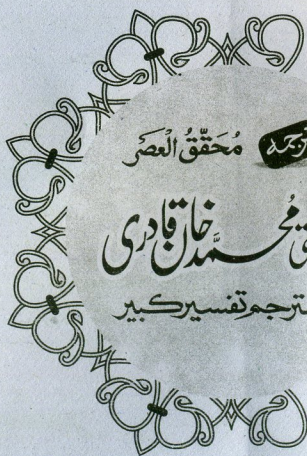 ترجمہ
مُحَقِّقُ الْعَصْر
مُحمّد خان قادری
مترجم تفسیر کبیر